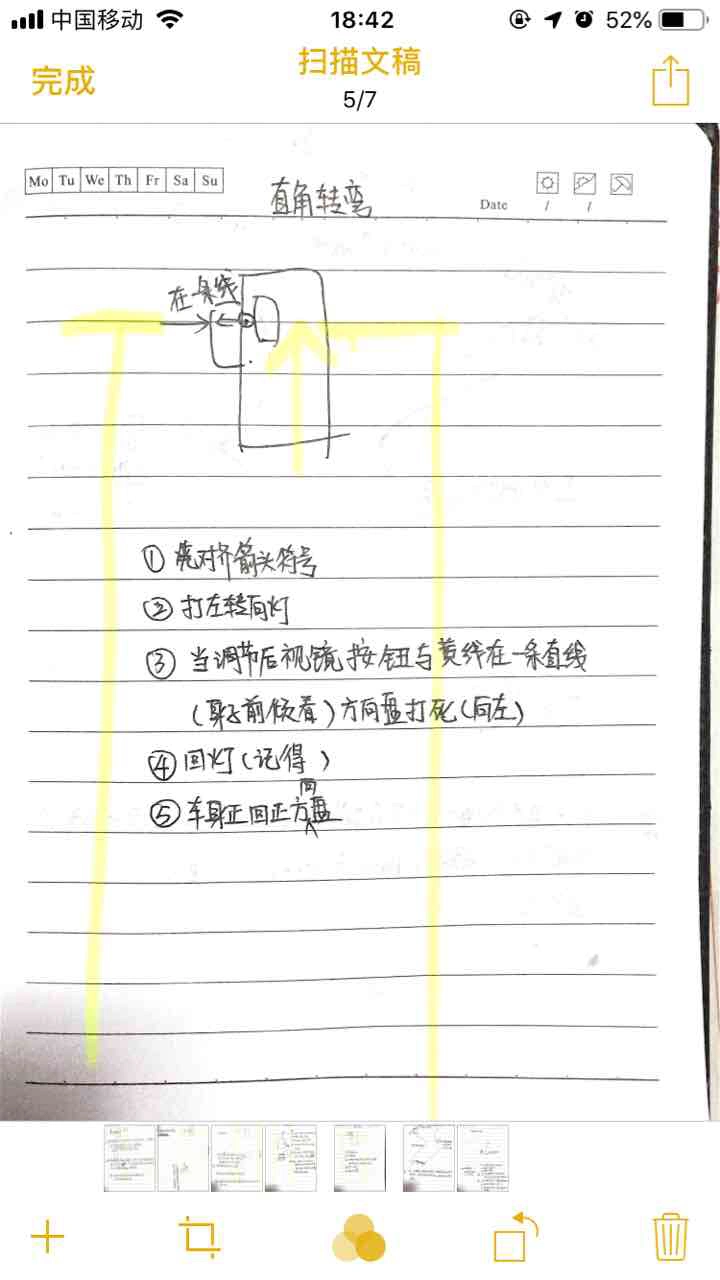 中国移动 18:42 52%
完成 扫描文稿
5/7
Mo Tu We Th Fr Sa Su
直角转弯
Date / /
在一条线
① 先对齐箭头符号
② 打左转向灯
③ 当调节后视镜按钮与黄线在一条直线
(身子前倾看)方向盘打死(向左)
④ 回灯(记得)
⑤ 车身正回正方向盘